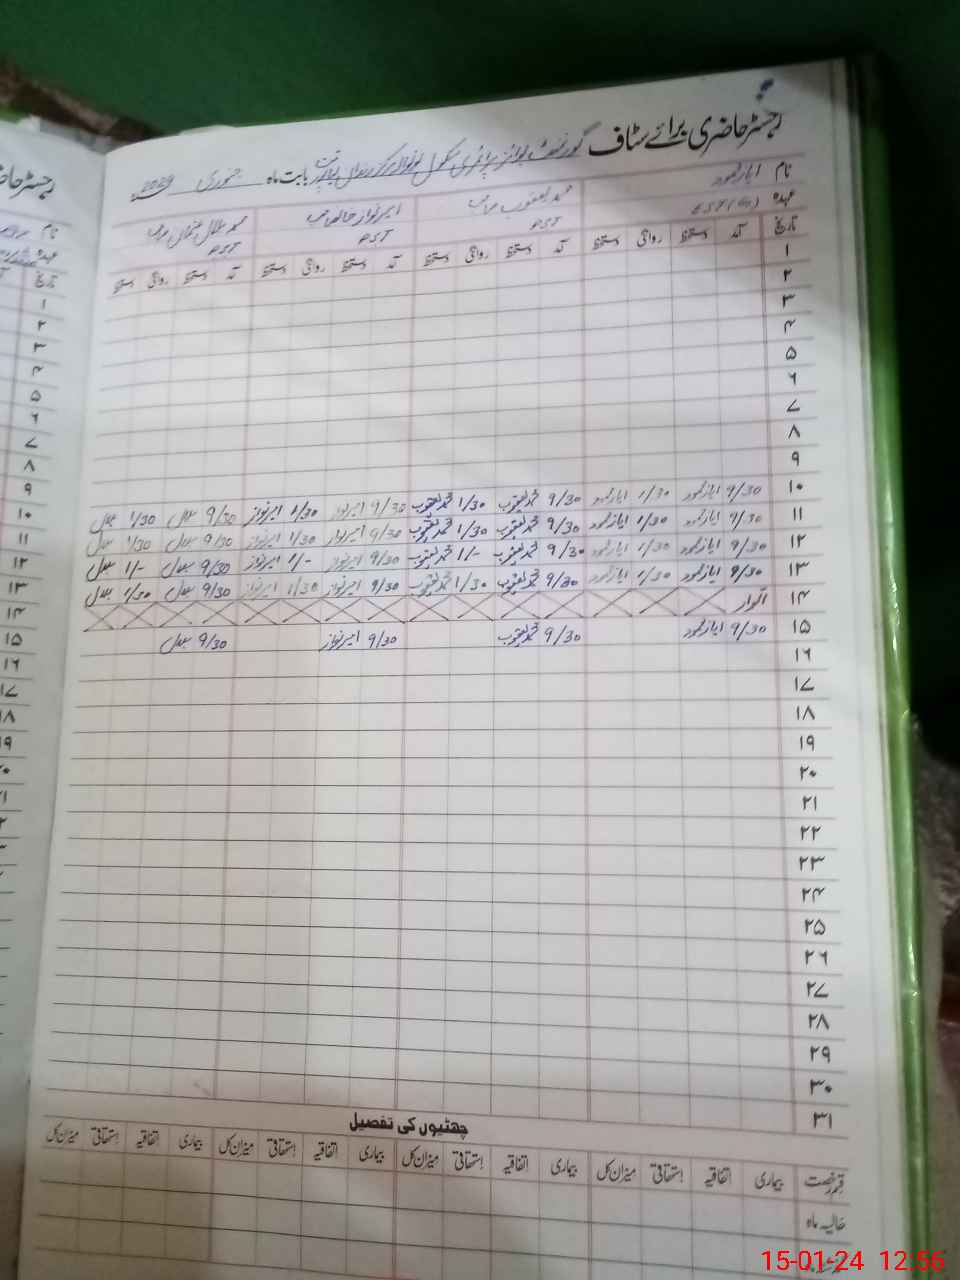 رجسٹر حاضری برائے سٹاف گورنمنٹ بوائز پرائمری سکول بابت ماہ جنوری 2024
نام ایاز محمود محمد یعقوب صاحب امیر نواز خان صاحب محمد بلال صاحب
عہدہ
تاریخ آمد دستخط روانگی دستخط آمد دستخط روانگی دستخط آمد دستخط روانگی دستخط آمد دستخط روانگی دستخط
۱
۲
۳
۴
۵
۶
۷
۸
۹
۱۰ 9/30 ایاز محمود 1/30 ایاز محمود 9/30 محمد یعقوب 1/30 محمد یعقوب 9/30 امیر نواز 1/30 امیر نواز 9/30 بلال 1/30 بلال
۱۱ 9/30 ایاز محمود 1/30 ایاز محمود 9/30 محمد یعقوب 1/30 محمد یعقوب 9/30 امیر نواز 1/30 امیر نواز 9/30 بلال 1/30 بلال
۱۲ 9/30 ایاز محمود 1/30 ایاز محمود 9/30 محمد یعقوب 1/- محمد یعقوب 9/30 امیر نواز 1/- امیر نواز 9/30 بلال 1/- بلال
۱۳ 9/30 ایاز محمود 1/30 ایاز محمود 9/30 محمد یعقوب 1/30 محمد یعقوب 9/30 امیر نواز 1/30 امیر نواز 9/30 بلال 1/30 بلال
۱۴ اتوار
۱۵ 9/30 ایاز محمود 9/30 محمد یعقوب 9/30 امیر نواز 9/30 بلال
۱۶
۱۷
۱۸
۱۹
۲۰
۲۱
۲۲
۲۳
۲۴
۲۵
۲۶
۲۷
۲۸
۲۹
۳۰
۳۱
چھٹیوں کی تفصیل
قسم رخصت بیماری اتفاقیہ استحقاقی میزان کل بیماری اتفاقیہ استحقاقی میزان کل بیماری اتفاقیہ استحقاقی میزان کل بیماری اتفاقیہ استحقاقی میزان کل
حالیہ ماہ
15-01-24 12:56